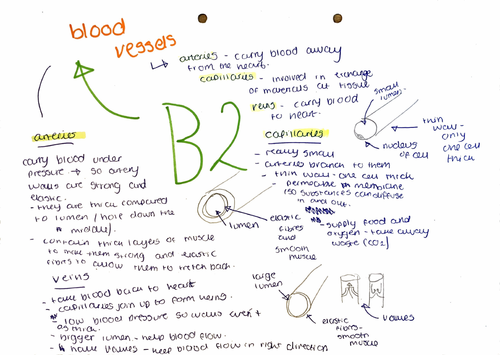 blood
vessels
↳ arteries - carry blood away
from the heart.
capillaries - involved in exchange
of materials at tissue
veins - carry blood
to heart.
B2
arteries
carry blood under
pressure → so artery
walls are strong and
elastic.
- they are thick compared
to lumen / hole down the
middle).
- contain thick layers of muscle
to make them strong and elastic
fibres to allow them to stretch back.
lumen
elastic
fibres
and
smooth
muscle
capillaries
- really small
- arteries branch to them
- thin wall - one cell thick
- permeable membrane
so substances can diffuse
in and out.
- supply food and
oxygen - take away
waste (CO2)
small
lumen
thin
wall -
only
one cell
thick
nucleus
of cell
veins
- take blood back to heart
- capillaries join up to form veins.
- low blood pressure so walls aren't
as thick.
- bigger lumen - help blood flow.
- have valves - keep blood flow in right direction
large
lumen
elastic
fibres -
smooth
muscle
valves